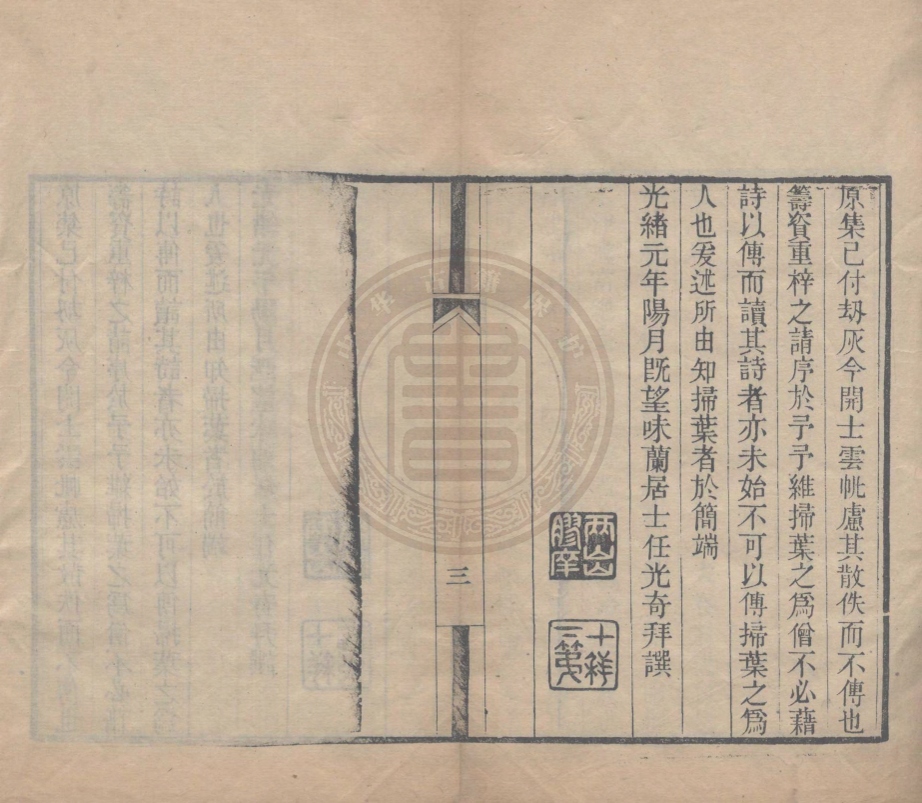 原集已付刼灰今開士雲帆慮其散佚而不傳也
籌資重梓之請序於予予維掃葉之爲僧不必藉
詩以傳而讀其詩者亦未始不可以傳掃葉之爲
人也爰述所由知掃葉者於簡端
光緒元年陽月既望味蘭居士任光奇拜譔
三